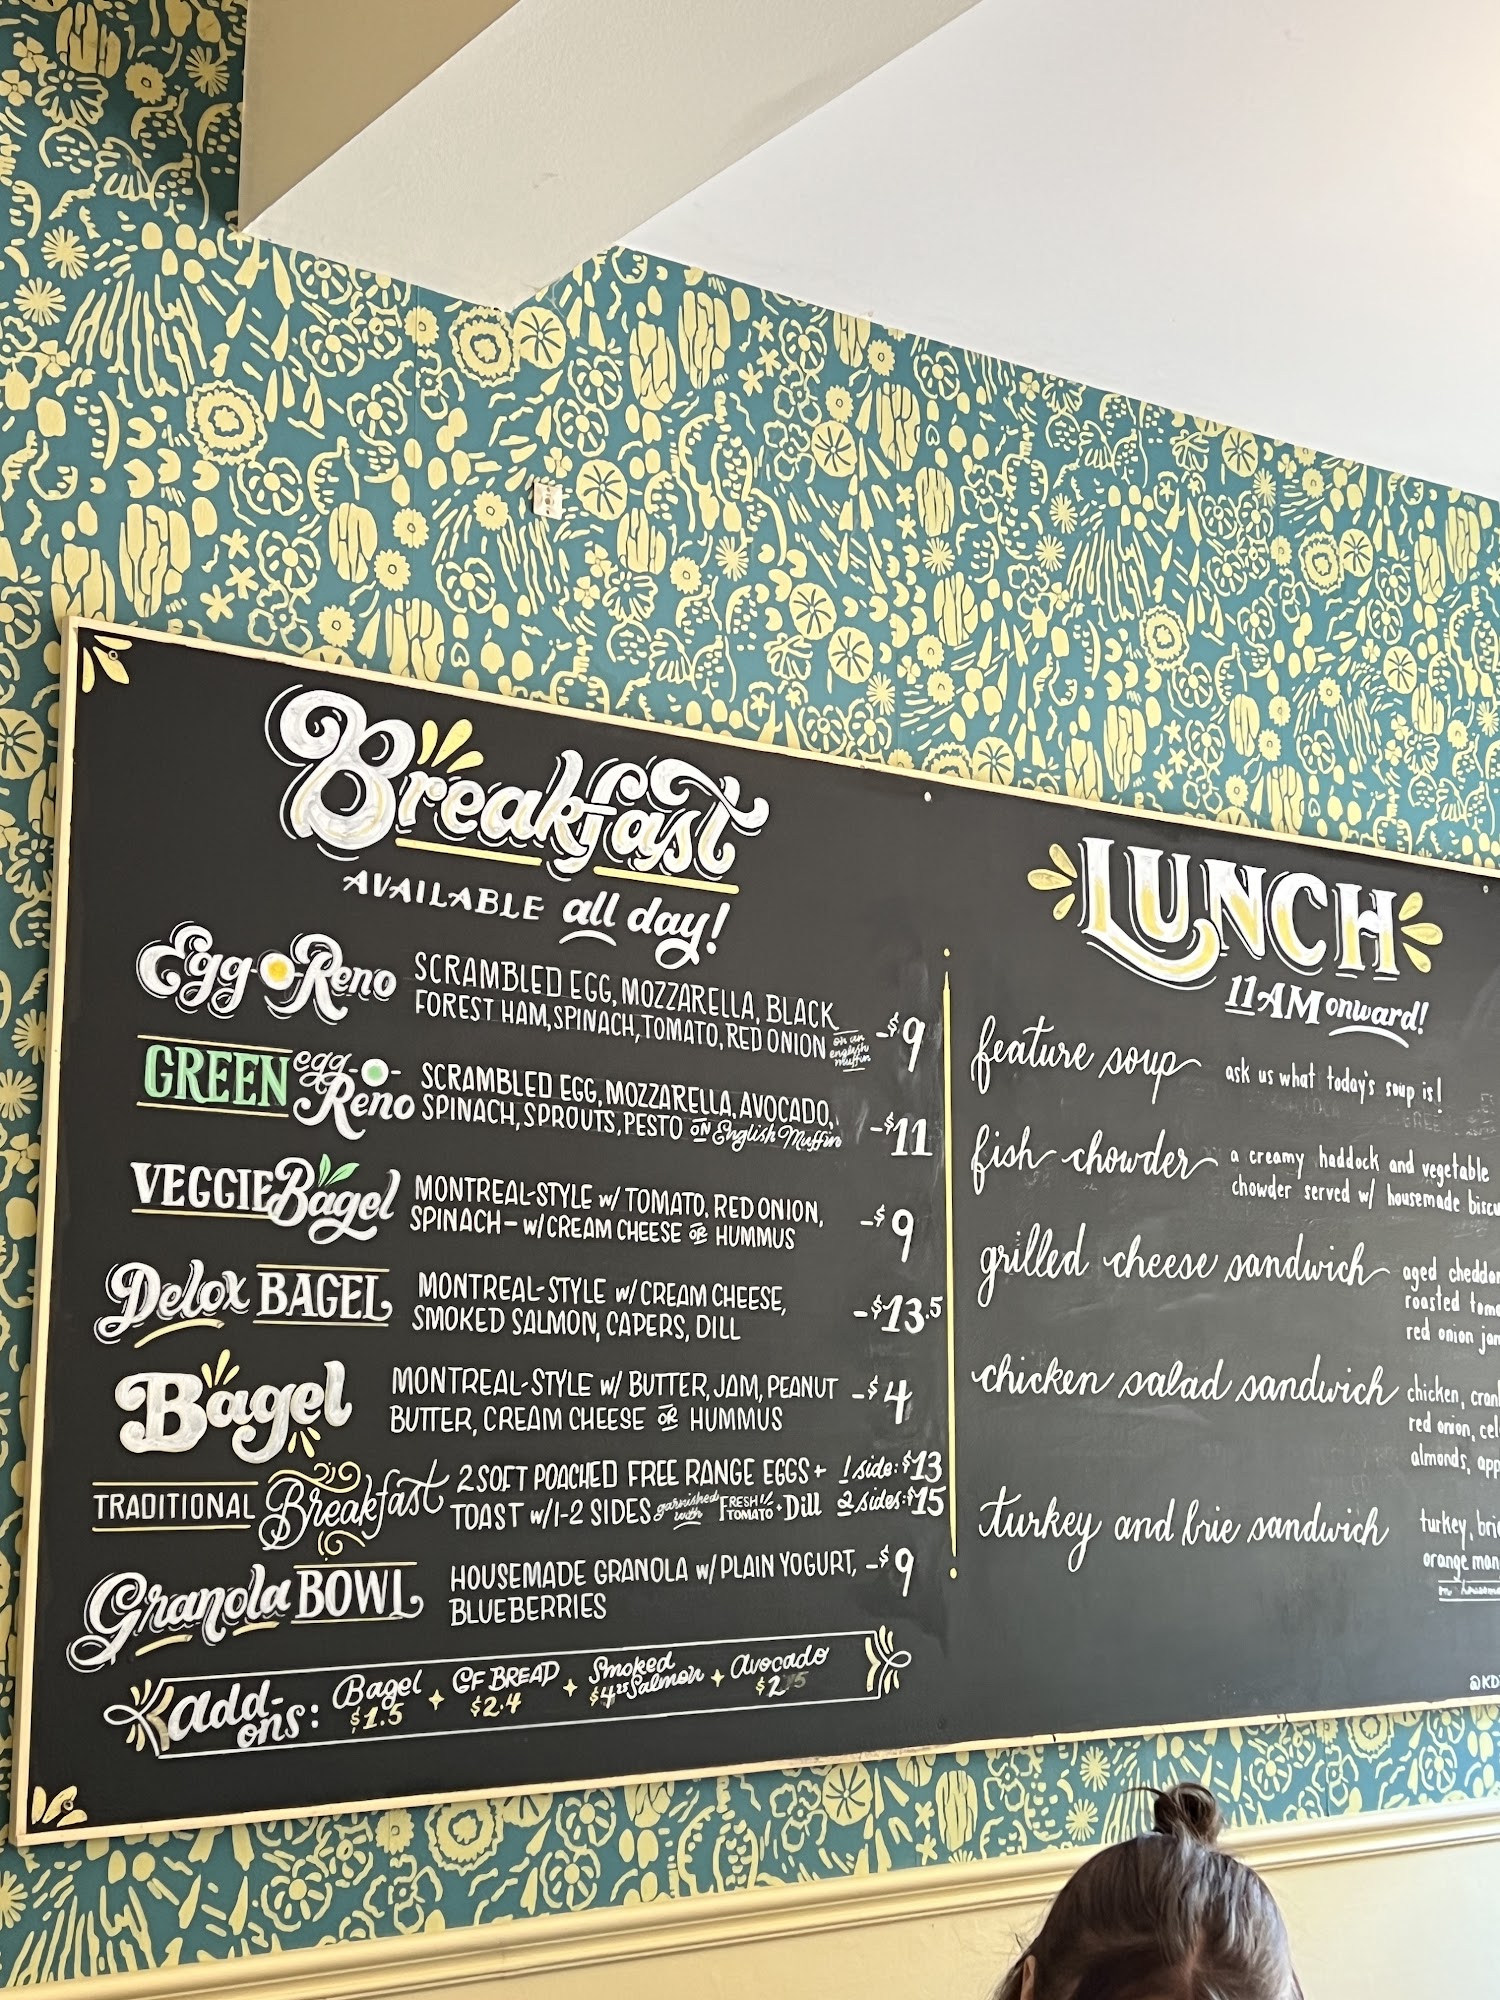 Breakfast
AVAILABLE all day!
Egg-O-Reno
SCRAMBLED EGG, MOZZARELLA, BLACK
FOREST HAM, SPINACH, TOMATO, RED ONION on an english muffin -$9
GREEN egg-O-Reno
SCRAMBLED EGG, MOZZARELLA, AVOCADO,
SPINACH, SPROUTS, PESTO ON English Muffin -$11
VEGGIE Bagel
MONTREAL-STYLE w/ TOMATO, RED ONION,
SPINACH - w/ CREAM CHEESE OR HUMMUS -$9
Delox BAGEL
MONTREAL-STYLE w/ CREAM CHEESE,
SMOKED SALMON, CAPERS, DILL -$13.5
Bagel
MONTREAL-STYLE w/ BUTTER, JAM, PEANUT -$4
BUTTER, CREAM CHEESE OR HUMMUS
TRADITIONAL Breakfast
2 SOFT POACHED FREE RANGE EGGS + 1 side: $13
TOAST w/1-2 SIDES garnished with FRESH TOMATO + Dill 2 sides: $15
Granola BOWL
HOUSEMADE GRANOLA w/ PLAIN YOGURT, -$9
BLUEBERRIES
Add-ons: Bagel $1.5 + GF BREAD $2.4 + Smoked Salmon $4.25 + Avocado $2
LUNCH
11AM onward!
feature soup ask us what today's soup is!
fish chowder a creamy haddock and vegetable
chowder served w/ housemade biscu
grilled cheese sandwich aged cheddar
roasted toma
red onion jam
chicken salad sandwich chicken, cran
red onion, cel
almonds, app
turkey and brie sandwich turkey, brie
orange man
@KD